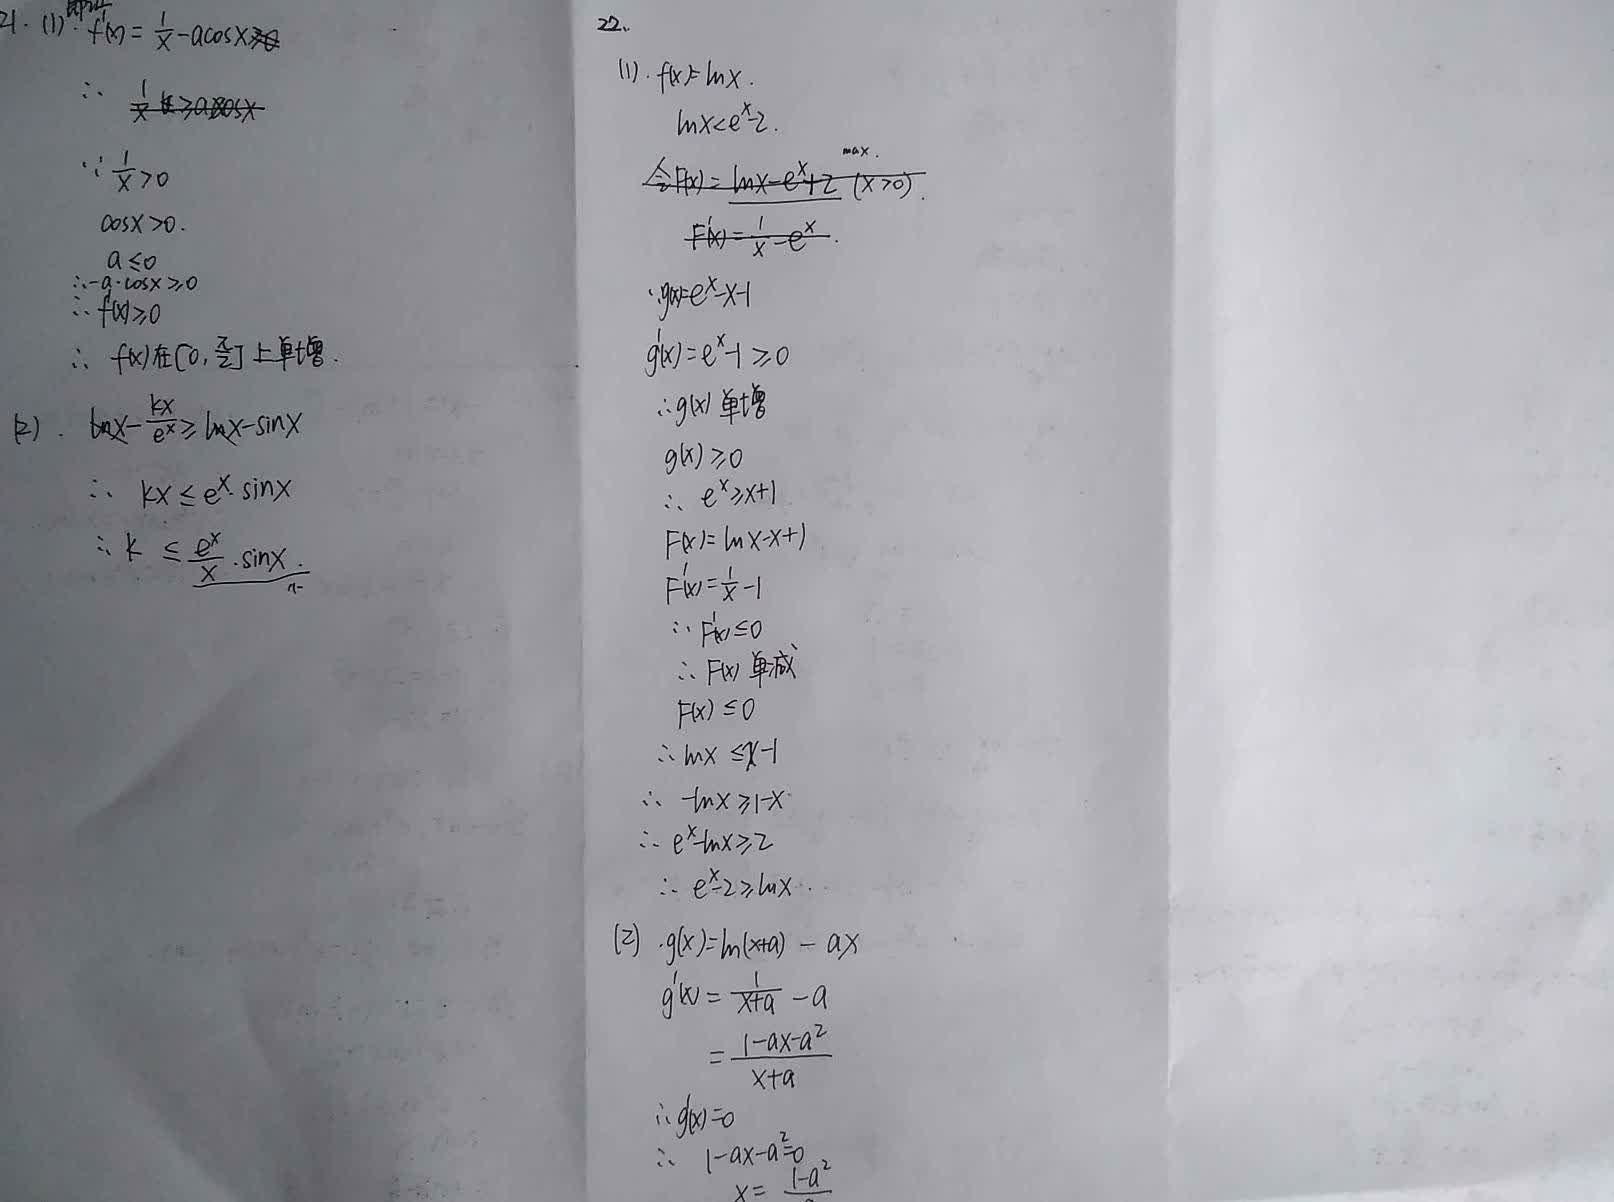 21. (1). f'(x) = 1/x - acosx
∴ 1/x ≥ acosx
∵ 1/x > 0
cosx > 0.
a ≤ 0
∴ -a·cosx ≥ 0
∴ f'(x) ≥ 0
∴ f(x)在[0, π/2]上单增.
(2). lnx - kx/e^x ≥ lnx - sinx
∴ kx ≤ e^x·sinx
∴ k ≤ e^x/x ·sinx.
22.
(1). f(x) = lnx.
lnx < e^x - 2.
max.
令F(x) = lnx - e^x + 2 (x>0).
F'(x) = 1/x - e^x.
g(x) = e^x - x - 1
g'(x) = e^x - 1 ≥ 0
∴ g(x) 单增
g(x) ≥ 0
∴ e^x ≥ x+1
F(x) = lnx - x + 1
F'(x) = 1/x - 1
∴ F'(x) ≤ 0
∴ F(x) 单减
F(x) ≤ 0
∴ lnx ≤ x - 1
∴ -lnx ≥ 1 - x
∴ e^x - lnx ≥ 2
∴ e^x - 2 ≥ lnx
(2) g(x) = ln(x+a) - ax
g'(x) = 1/(x+a) - a
= (1 - ax - a²)/(x+a)
∴ g'(x) = 0
∴ 1 - ax - a² = 0
x = 1-a²